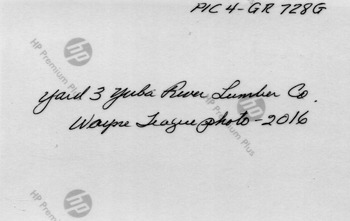 PIC 4-GR 728G
HP Premium Plus
hp
Yard 3 Yuba River Lumber Co.
Wayne League photo - 2016
HP Premium Plus
hp
HP Premium Plus
hp